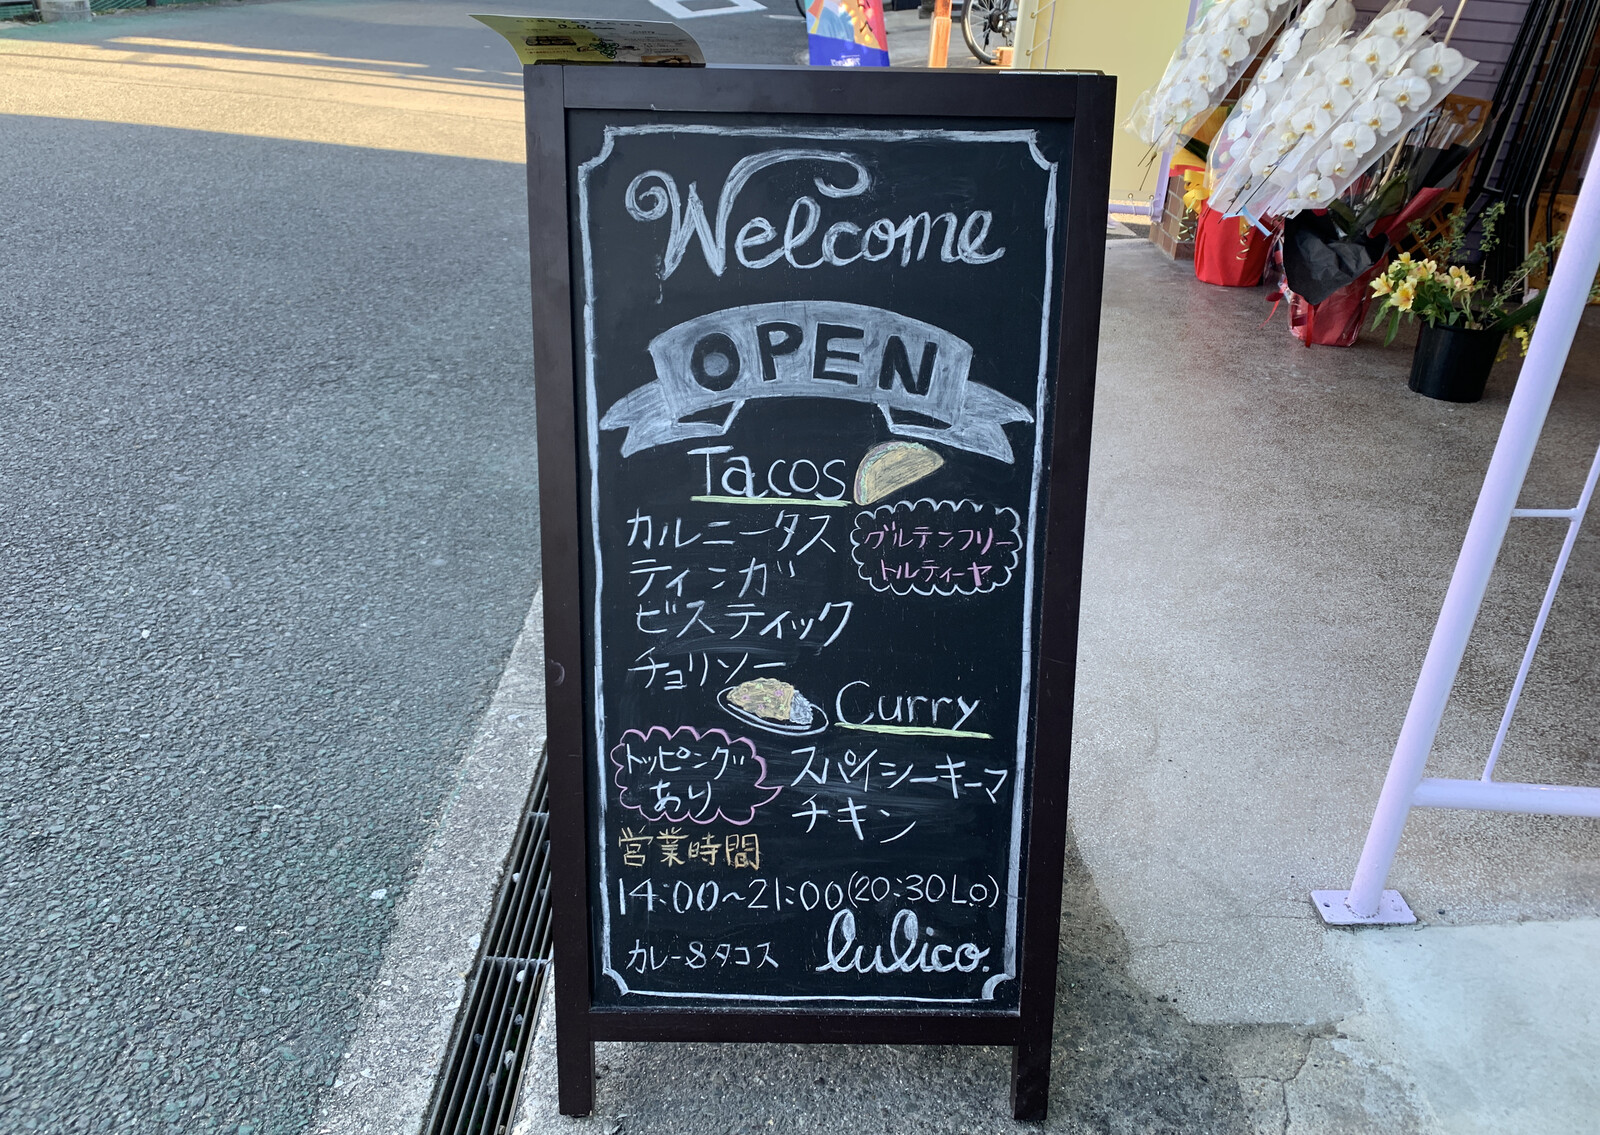 Welcome
OPEN
Tacos
カルニータス
グルテンフリー
トルティーヤ
ティンガ
ビスティック
チョリソー
Curry
トッピング
あり
スパイシーキーマ
チキン
営業時間
14:00~21:00(20:30L.o)
カレー&タコス
lulico.